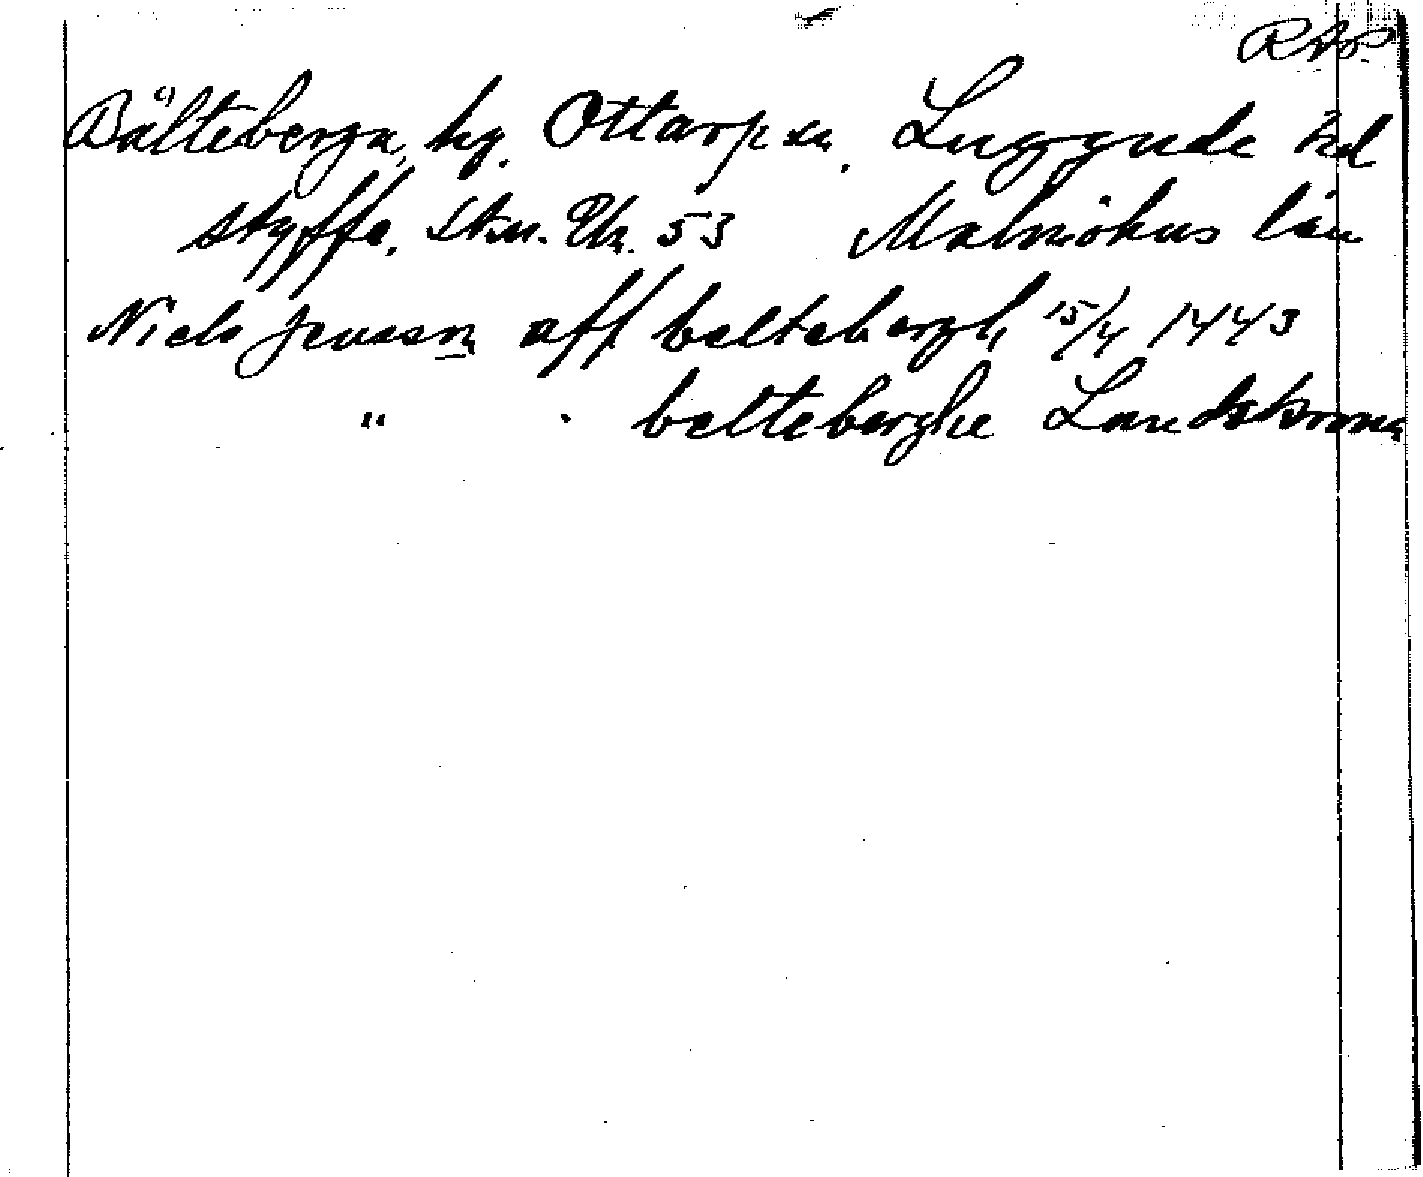 RAP
Bälteberga, hg. Ottarp sn. Luggude hd
Styffe, Skn. Un. 53 Malmöhus län
Niels Jenssen aff beltebergh 15/4 1443
" " belteberghe Landskrona